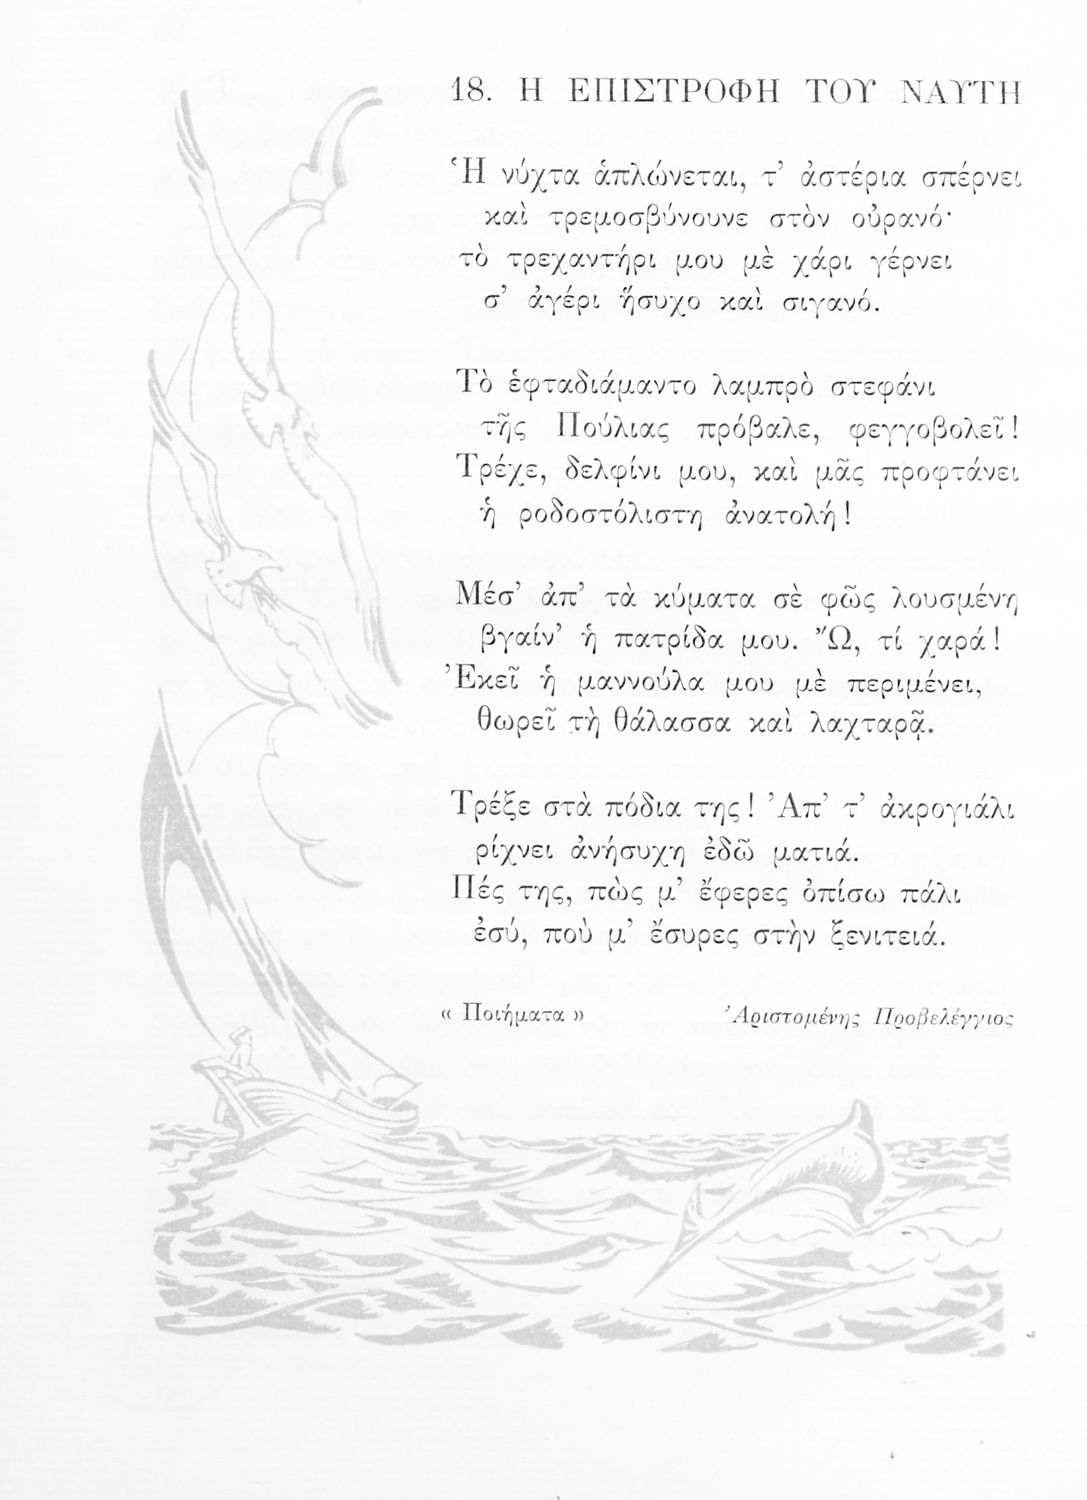 18. Η ΕΠΙΣΤΡΟΦΗ ΤΟΥ ΝΑΥΤΗ
Ἡ νύχτα ἁπλώνεται, τ’ ἀστέρια σπέρνει
καὶ τρεμοσβύνουνε στὸν οὐρανό·
τὸ τρεχαντήρι μου μὲ χάρι γέρνει
σ’ ἀγέρι ἥσυχο καὶ σιγανό.
Τὸ ἑφταδιάμαντο λαμπρὸ στεφάνι
τῆς Πούλιας πρόβαλε, φεγγοβολεῖ!
Τρέχε, δελφίνι μου, καὶ μᾶς προφτάνει
ἡ ροδοστόλιστη ἀνατολή!
Μέσ’ ἀπ’ τὰ κύματα σὲ φῶς λουσμένη
βγαίν’ ἡ πατρίδα μου. Ὤ, τί χαρά!
Ἐκεῖ ἡ μαννούλα μου μὲ περιμένει,
θωρεῖ τὴ θάλασσα καὶ λαχταρᾷ.
Τρέξε στὰ πόδια της! Ἀπ’ τ’ ἀκρογιάλι
ρίχνει ἀνήσυχη ἐδῶ ματιά.
Πές της, πὼς μ’ ἔφερες ὀπίσω πάλι
ἐσύ, ποὺ μ’ ἔσυρες στὴν ξενιτειά.
« Ποιήματα » Ἀριστομένης Προβελέγγιος